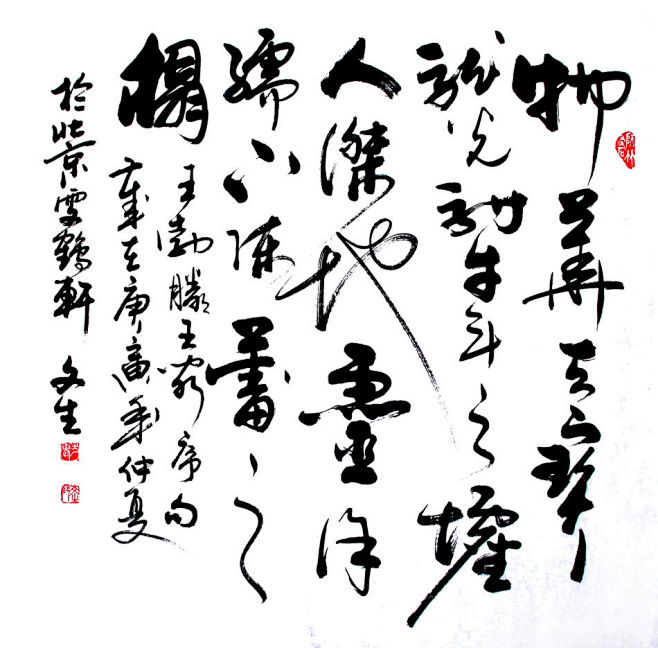 物華天寶
龍光射牛斗之墟
人傑地靈徐
孺下陳蕃之
榻
王勃滕王閣序句
歲在庚寅年仲夏
於北京鶴軒 文生